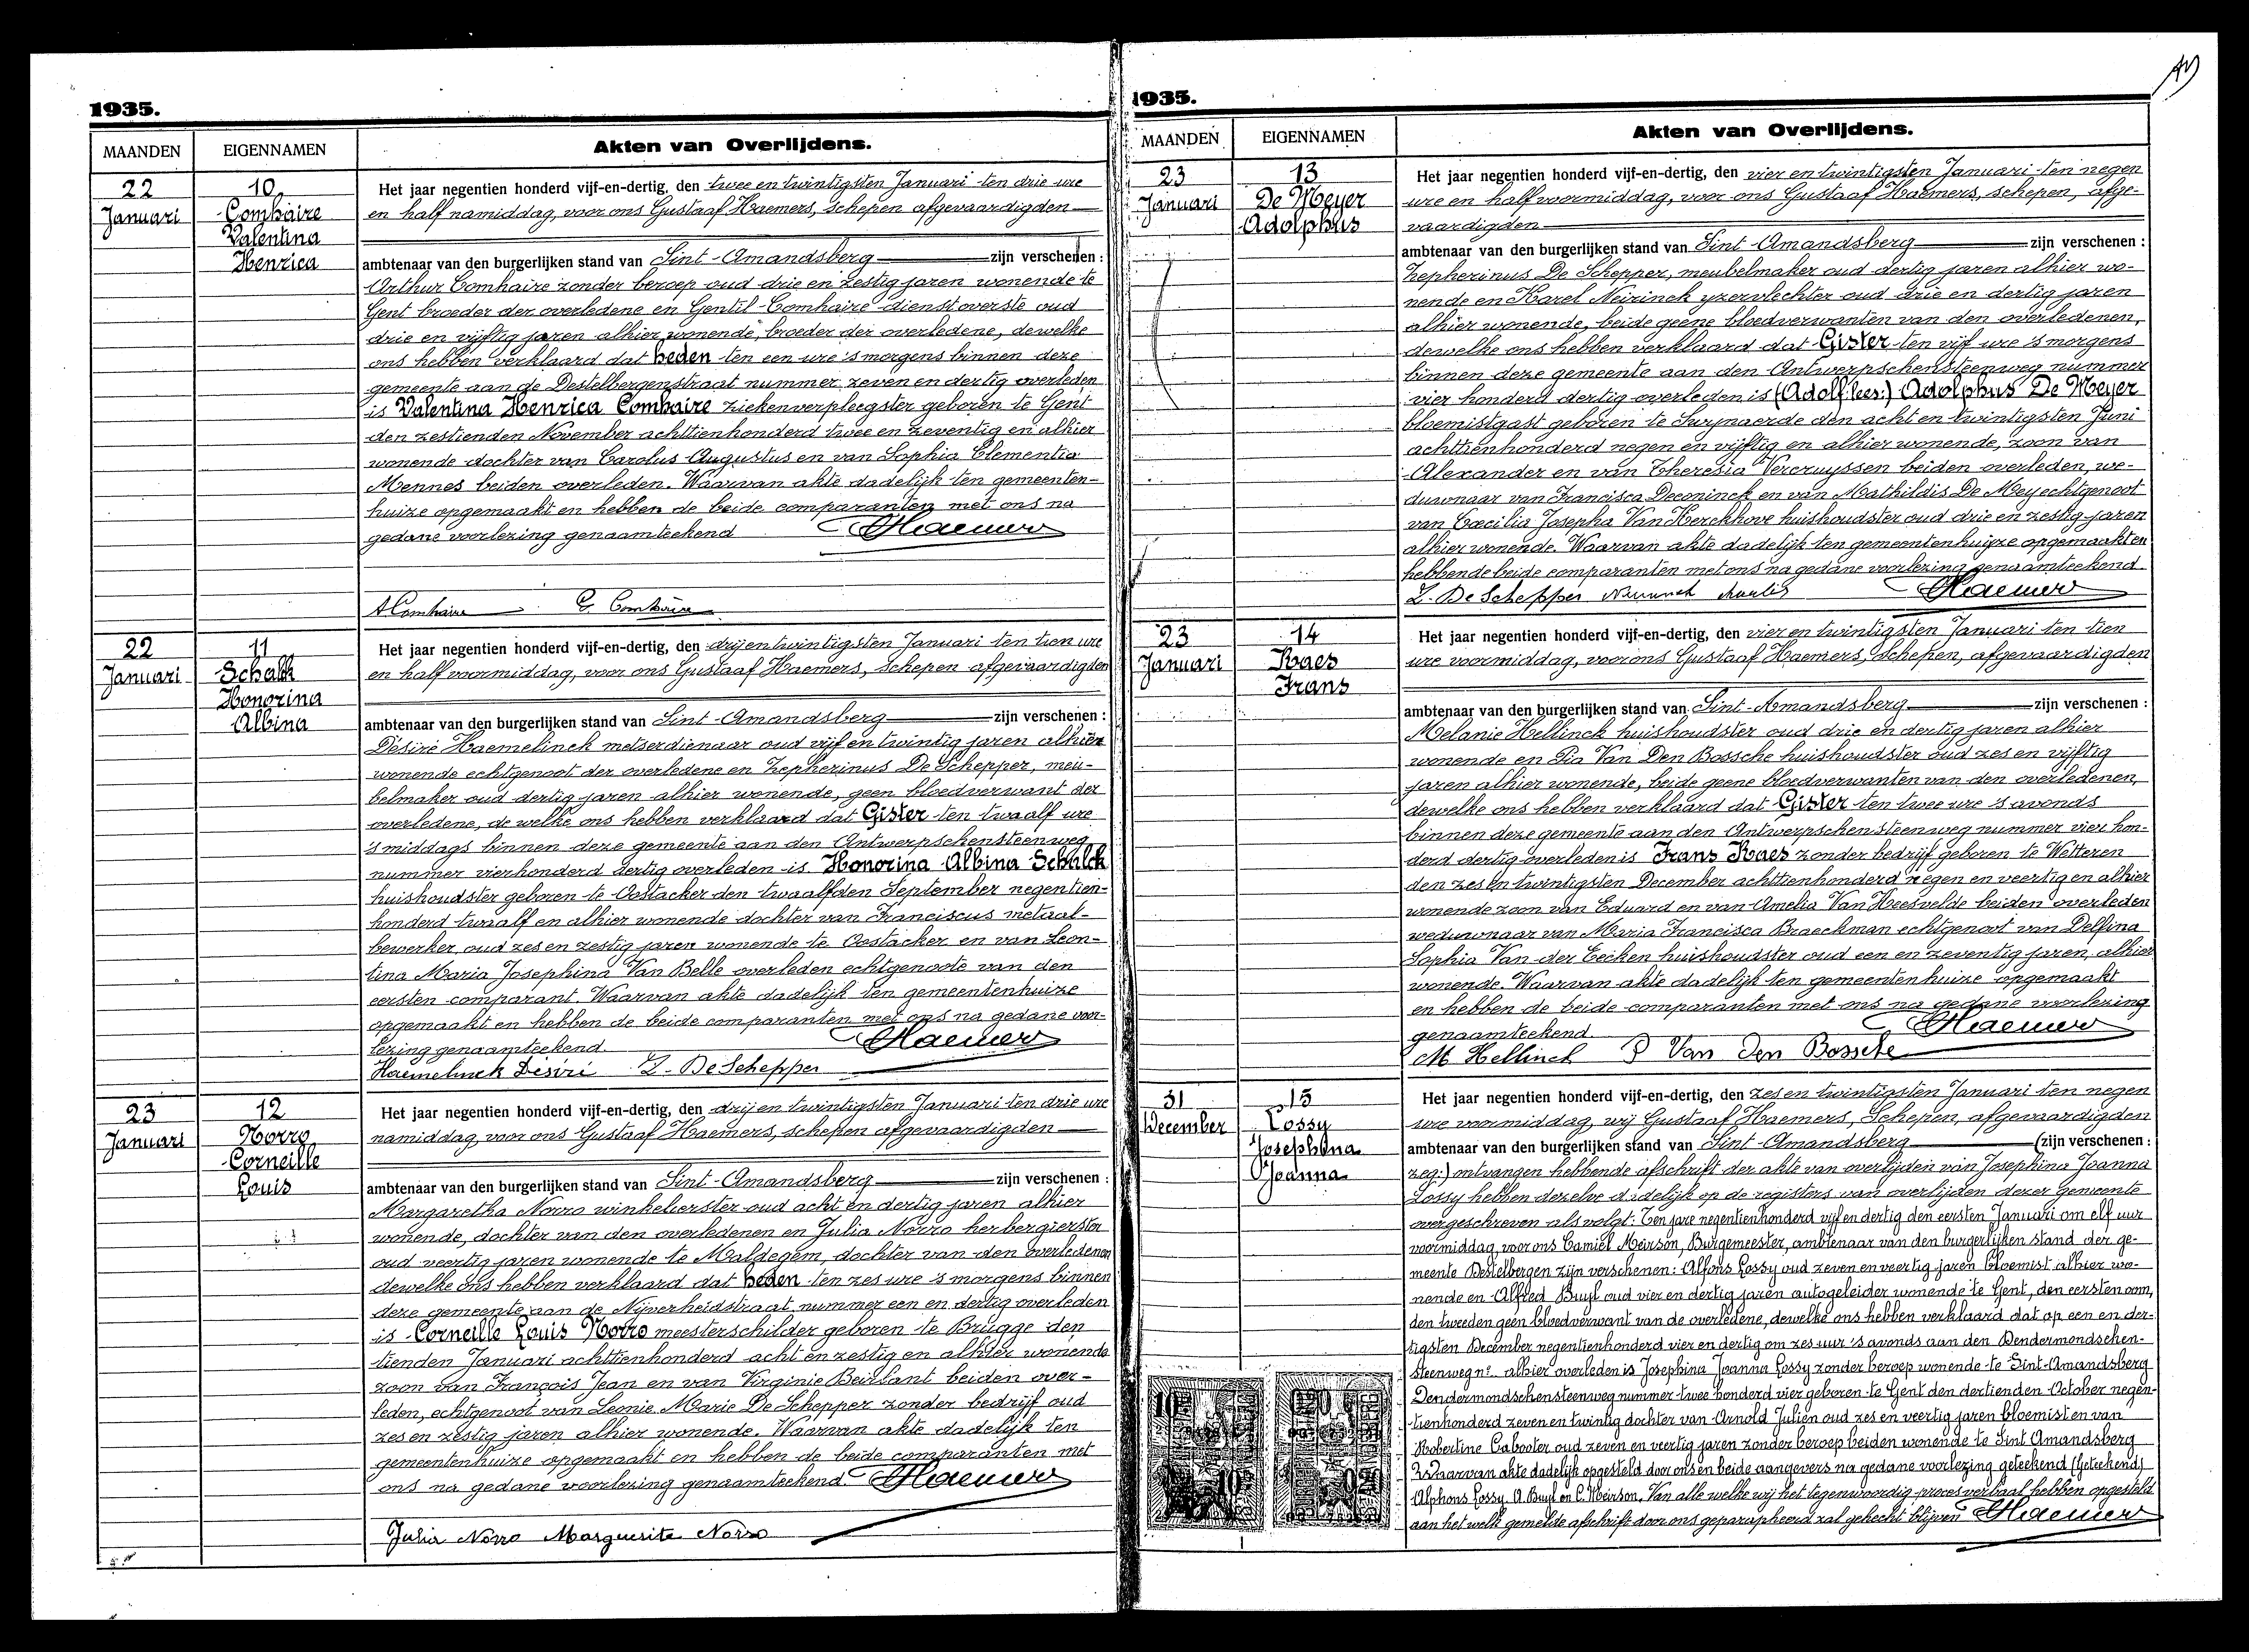 1935.
MAANDEN EIGENNAMEN Akten van Overlijdens.
22
Januari
10
Comhaire
Valentina
Henrica
Het jaar negentien honderd vijf-en-dertig, den twee en twintigsten Januari ten drie ure
en half namiddag, voor ons Gustaaf Haemers, schepen afgevaardigden
ambtenaar van den burgerlijken stand van Sint-Amandsberg zijn verschenen :
Arthur Comhaire zonder beroep oud drie en zestig jaren wonende te
Gent broeder der overledene en Gentil Comhaire dienstoverste oud
drie en vijftig jaren alhier wonende, broeder der overledene, dewelke
ons hebben verklaard dat heden ten een ure 's morgens binnen deze
gemeente aan de Destelbergenstraat nummer zeven en dertig overleden
is Valentina Henrica Comhaire ziekenverpleegster geboren te Gent
den zestienden November achttienhonderd twee en zeventig en alhier
wonende dochter van Carolus Augustus en van Sophia Clementia
Mennes beiden overleden. Waarvan akte dadelijk ten gemeenten-
huize opgemaakt en hebben de beide comparanten met ons na
gedane voorlezing genaamteekend GHaemers
A Comhaire G. Comhaire
22
Januari
11
Schalck
Honorina
Albina
Het jaar negentien honderd vijf-en-dertig, den drij en twintigsten Januari ten tien ure
en half voormiddag, voor ons Gustaaf Haemers, Schepen afgevaardigden
ambtenaar van den burgerlijken stand van Sint-Amandsberg zijn verschenen :
Désiré Haemelinck metserdienaar oud vijf en twintig jaren alhier
wonende echtgenoot der overledene en Zepherinus De Schepper, meu-
belmaker oud dertig jaren alhier wonende, geen bloedverwant der
overledene, de welke ons hebben verklaard dat Gister ten twaalf ure
's middags binnen deze gemeente aan den Antwerpschensteenweg
nummer vierhonderd dertig overleden is Honorina Albina Schalck
huishoudster geboren te Oostacker den twaalfden September negentien-
honderd twaalf en alhier wonende dochter van Franciscus metaal-
bewerker oud zes en zestig jaren wonende te Oostacker en van Leon-
tina Maria Josephina Van Belle overleden echtgenoote van den
eersten comparant. Waarvan akte dadelijk ten gemeentenhuize
opgemaakt en hebben de beide comparanten met ons na gedane voor-
lezing genaamteekend. GHaemers
Haemelinck Désiré Z. De Schepper
23
Januari
12
Norro
Corneille
Louis
Het jaar negentien honderd vijf-en-dertig, den drij en twintigsten Januari ten drie ure
namiddag, voor ons Gustaaf Haemers, schepen afgevaardigden
ambtenaar van den burgerlijken stand van Sint-Amandsberg zijn verschenen :
Margaretha Norro winkelierster oud acht en dertig jaren alhier
wonende, dochter van den overledenen en Julia Norro herbergierster
oud veertig jaren wonende te Maldegem, dochter van den overledenen
dewelke ons hebben verklaard dat heden ten zes ure 's morgens binnen
deze gemeente aan de Nijverheidstraat nummer een en dertig overleden
is Corneille Louis Norro meesterschilder geboren te Brugge den
tienden Januari achttienhonderd acht en zestig en alhier wonende
zoon van François Jean en van Virginie Beirlant beiden over-
leden, echtgenoot van Leonie Marie De Schepper zonder bedrijf oud
zes en zestig jaren alhier wonende. Waarvan akte dadelijk ten
gemeentenhuize opgemaakt en hebben de beide comparanten met
ons na gedane voorlezing genaamteekend. GHaemers
Julia Norro Marguerite Norro
1935.
MAANDEN EIGENNAMEN Akten van Overlijdens.
23
Januari
13
De Meyer
Adolphus
Het jaar negentien honderd vijf-en-dertig, den vier en twintigsten Januari ten negen
ure en half voormiddag, voor ons Gustaaf Haemers, schepen, afge-
vaardigden
ambtenaar van den burgerlijken stand van Sint-Amandsberg zijn verschenen :
Zepherinus De Schepper, meubelmaker oud dertig jaren alhier wo-
nende en Karel Neirinck yzervlechter oud drie en dertig jaren
alhier wonende, beide geene bloedverwanten van den overledenen,
dewelke ons hebben verklaard dat Gister ten vijf ure 's morgens
binnen deze gemeente aan den Antwerpschensteenweg nummer
vier honderd dertig overleden is (Adolf: lees:) Adolphus De Meyer
bloemistgast geboren te Swijnaerde den acht en twintigsten Juni
achttienhonderd negen en vijftig en alhier wonende, zoon van
Alexander en van Theresia Vercruyssen beiden overleden, we-
duwnaar van Francisca Deconinck en van Mathildis De Mey echtgenoot
van Cæcilia Josepha Van Kerckhove huishoudster oud drie en zestig jaren
alhier wonende. Waarvan akte dadelijk ten gemeentenhuize opgemaakt en
hebben de beide comparanten met ons na gedane voorlezing genaamteekend
Z. De Schepper GHaemers
23
Januari
14
Raes
Frans
Het jaar negentien honderd vijf-en-dertig, den vier en twintigsten Januari ten tien
ure voormiddag, voor ons Gustaaf Haemers, Schepen, afgevaardigden
ambtenaar van den burgerlijken stand van Sint-Amandsberg zijn verschenen :
Melanie Hellinck huishoudster oud drie en dertig jaren alhier
wonende en Pia Van Den Bossche huishoudster oud zes en vijftig
jaren alhier wonende, beide geene bloedverwanten van den overledenen,
dewelke ons hebben verklaard dat Gister ten twee ure 's avonds
binnen deze gemeente aan den Antwerpschensteenweg nummer vier hon-
derd dertig overleden is Frans Raes zonder bedrijf geboren te Wetteren
den zes en twintigsten December achttienhonderd negen en veertig en alhier
wonende zoon van Eduard en van Amelia Van Heesvelde beiden overleden
weduwnaar van Maria Francisca Braeckman echtgenoot van Delfina
Sophia Van der Eecken huishoudster oud een en zeventig jaren, alhier
wonende. Waarvan akte dadelijk ten gemeentenhuize opgemaakt
en hebben de beide comparanten met ons na gedane voorlezing
genaamteekend GHaemers
M Hellinck P Van Den Bossche
31
December
15
Lossy
Josephina
Joanna
Het jaar negentien honderd vijf-en-dertig, den zes en twintigsten Januari ten negen
ure voormiddag, wij Gustaaf Haemers, Schepen, afgevaardigden
ambtenaar van den burgerlijken stand van Sint-Amandsberg (zijn verschenen :
zeg:) ontvangen hebbende afschrift der akte van overlijden van Josephina Joanna
Lossy hebben dezelve dadelijk op de registers van overlijden dezer gemeente
overgeschreven als volgt: Ten jare negentienhonderd vijf en dertig den eersten Januari om elf uur
voormiddag, voor ons Camiel Meirson, Burgemeester, ambtenaar van den burgerlijken stand der ge-
meente Destelbergen zijn verschenen: Alfons Lossy oud zeven en veertig jaren bloemist alhier wo-
nende en Alfred Buyl oud vier en dertig jaren autogeleider wonende te Gent, den eersten oom,
den tweeden geen bloedverwant van de overledene, dewelke ons hebben verklaard dat op een en der-
tigsten December negentienhonderd vier en dertig om zes uur 's avonds aan den Dendermondschen-
steenweg nr alhier overleden is Josephina Joanna Lossy zonder beroep wonende te Sint-Amandsberg
Dendermondschensteenweg nummer twee honderd vier geboren te Gent den dertienden October negen-
tienhonderd zeven en twintig dochter van Arnold Julien oud zes en veertig jaren bloemist en van
Robertine Cabooter oud zeven en veertig jaren zonder beroep beiden wonende te Sint Amandsberg
Waarvan akte dadelijk opgesteld door ons en beide aangevers na gedane voorlezing geteekend (Geteekend)
Alphons Lossy, A. Buyl en C. Meirson. Van alle welke wij het tegenwoordig proces verbaal hebben opgesteld
aan het welk gemelde afschrift door ons geparapheerd zal gehecht blijven GHaemers